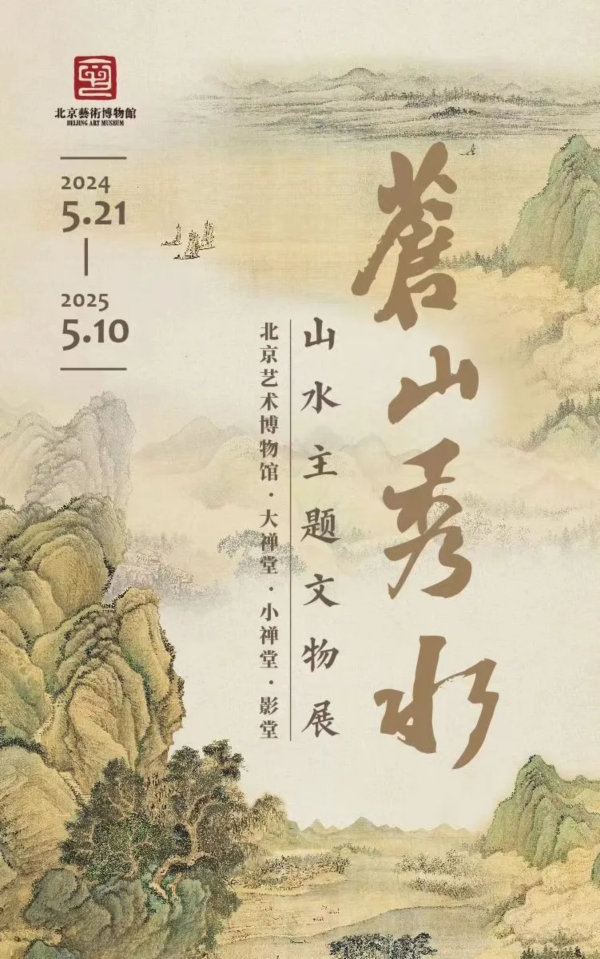 北京藝術博物館
BEIJING ART MUSEUM
2024
5.21
2025
5.10
蒼山秀水
山水主题文物展
北京艺术博物馆·大禅堂·小禅堂·影堂